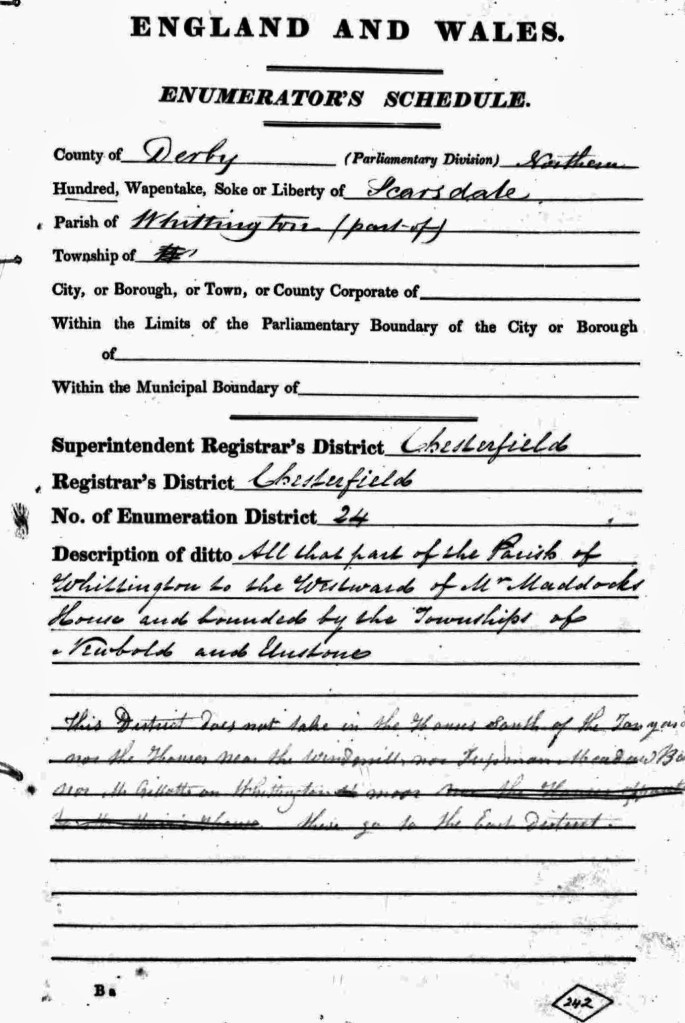 ENGLAND AND WALES.
ENUMERATOR'S SCHEDULE.
County of Derby (Parliamentary Division) Northern
Hundred, Wapentake, Soke or Liberty of Scarsdale
Parish of Whittington (part of)
Township of
City, or Borough, or Town, or County Corporate of
Within the Limits of the Parliamentary Boundary of the City or Borough
of
Within the Municipal Boundary of
Superintendent Registrar's District Chesterfield
Registrar's District Chesterfield
No. of Enumeration District 24
Description of ditto All that part of the Parish of
Whittington to the Westward of Mr Maddocks
House and bounded by the Townships of
Newbold and Unstone
This District does not take in the Houses South of the Tan yard
nor the Houses near the Windmill, nor Meadow
nor Mr on Whittington moor nor the Houses
these go to the East District.
B a
242